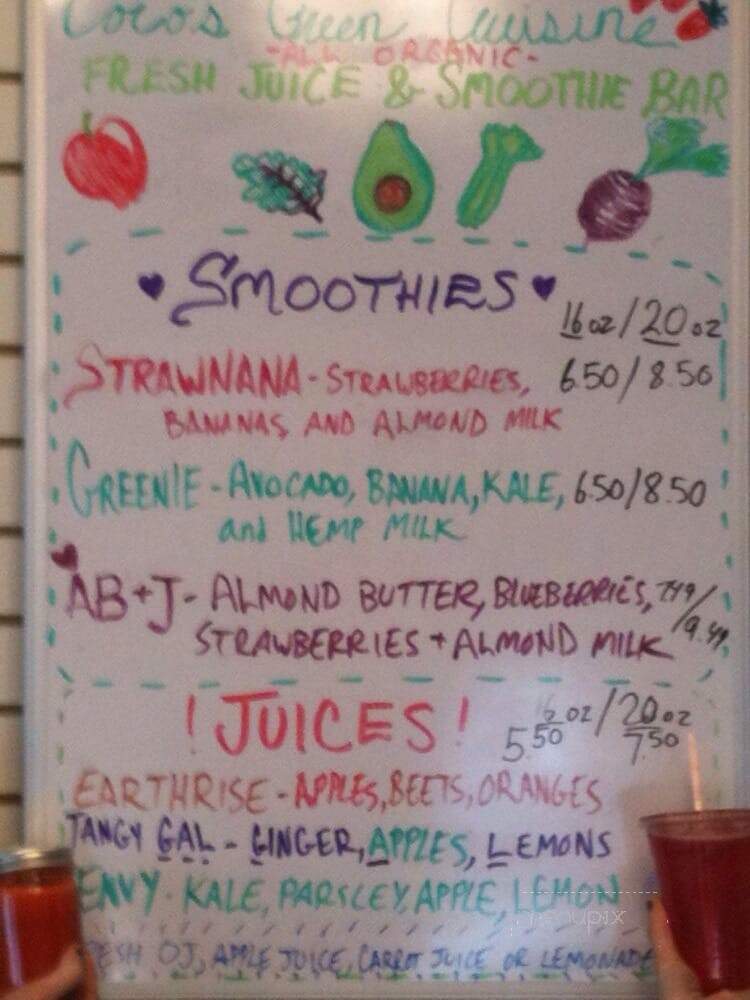 Coco's Green Cuisine
-ALL ORGANIC-
FRESH JUICE & SMOOTHIE BAR
SMOOTHIES
16 oz / 20 oz
STRAWNANA - STRAWBERRIES, 6.50 / 8.50
BANANAS AND ALMOND MILK
GREENIE - AVOCADO, BANANA, KALE, 6.50/8.50
and HEMP MILK
AB+J - ALMOND BUTTER, BLUEBERRIES,
STRAWBERRIES + ALMOND MILK 9.49
! JUICES ! 16 oz / 20 oz
5.50 7.50
EARTHRISE - APPLES, BEETS, ORANGES
TANGY GAL - GINGER, APPLES, LEMONS
ENVY - KALE, PARSLEY, APPLE, LEMON
FRESH OJ, APPLE JUICE, CARROT JUICE OR LEMONADE